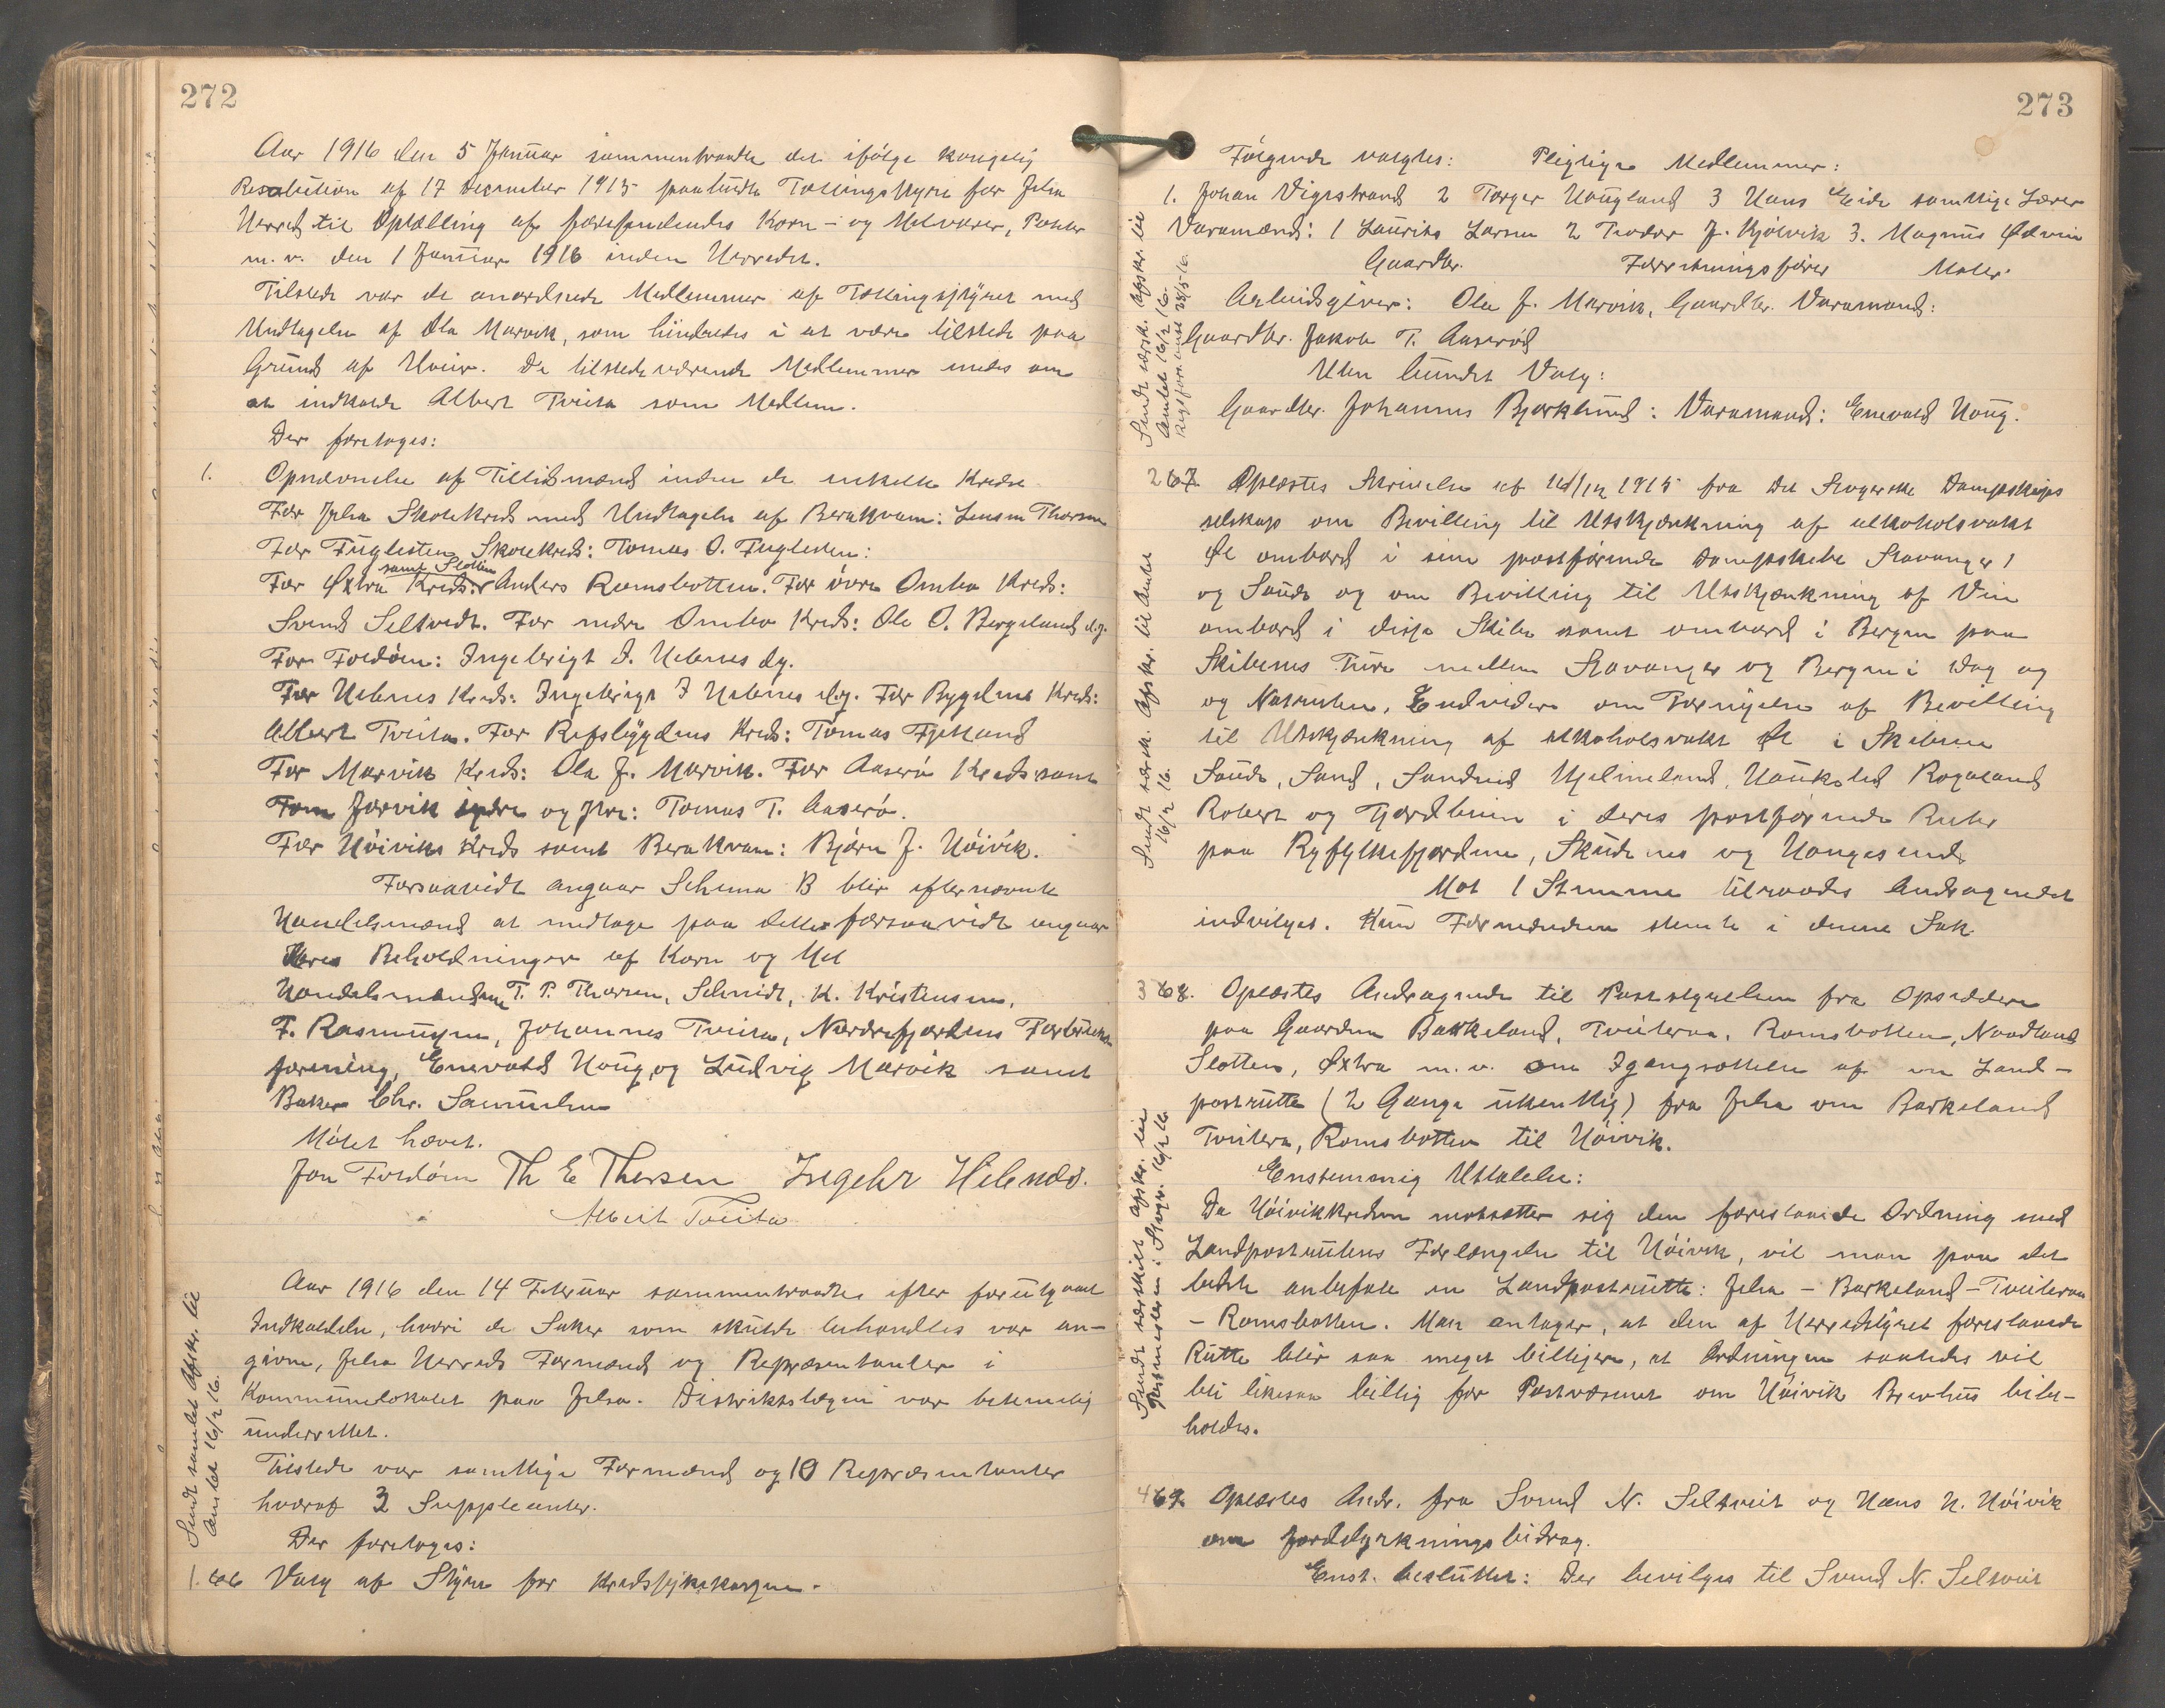 272
Aar 1916 den 5 Januar sammentraadte det ifølge kongelig
Resolution af 17 december 1915 paabudte Tællingsstyre for Jelsa
Herred til Optælling af forefindendes Korn- og Melvarer, Poteter
m.v. den 1 Januar 1916 inden Herredet.
Tilstede var de anordnede Medlemmer af Tællingsstyret med
Undtagelse af Ola Marvik, som hindredes i at være tilstede paa
Grund af Uveir. De tilstedeværende Medlemmer enedes om
at indkalde Albert Tveita som Medlem.
Der foretoges:
1. Opnævnelse af Tillidsmænd inden de enkelte Kredse
For Jelsa Skolekreds med Undtagelse af Berakvam: Lensm Thorsen
For Fuglesten Skolekreds: Tomas O. Fuglesten:
samt Slotten
For Øxtra Kreds: Anders Ramsbotten. For øvre Ombo Kreds:
Svend Seltvedt. For nedre Ombo Kreds: Ole O. Bergeland d.y.
For Foldøen: Ingebrigt I. Hebnes dy.
For Hebnes Kreds: Ingebrigt I Hebnes d.y. For Bygdens Kreds:
Albert Tveita. For Refsbygdens Kreds: Tomas Fjetland
For Marvik Kreds: Ola J. Marvik. For Aaserø Kreds samt
Jorvik indre og ytre: Tomas T. Aaserø.
For Høiviks Kreds samt Berakvam: Bjørn J. Høivik.
Forsaavidt angaar Schema B blir efternævnte
Handelsmænd at medtage paa dette forsaavidt angaar
deres Beholdninger af Korn og Mel
Handelsmændene T. P. Thorsen, Schmidt, K. Kristensen,
F. Rasmussen, Johannes Tveita, Nordrefjordens Forbruks-
forening, Enevald Haug, og Ludvig Marvik samt
Baker Chr. Samuelsen
Møtet hævet.
Jon Foldøen Th E Thorsen Ingebr Hebnes.
Albert Tveita
Aar 1916 den 14 Februar sammentraadte efter forutgaaet
Indkaldelse, hvori de Saker som skulde behandles var an-
givne, Jelsa Herreds Formænd og Repræsentanter i
Kommunelokalet paa Jelsa. Distriktslægen var betimelig
underrettet.
Tilstede var samtlige Formænd og 10 Repræsentanter
hvoraf 3 Suppleanter.
Der foretoges:
1. 66 Valg af Styre for Kredssykekassen.
Sendt samlet Afskr. til
Amtet 16/2 16.
273
Følgende valgtes: Pligtige Medlemmer:
1. Johan Vigestrand 2 Torger Haugland 3 Hans Eide samtlige Lærer
Varamænd: 1 Laurits Larsen 2 Teodor J. Kjølvik 3. Magnus Ødvin
Gaardbr. Forretningsfører Maler.
Arbeidsgiver: Ola J. Marvik, Gaardbr. Varamand:
Gaardbr. Jakob T. Aaserød
Uten bundet Valg:
Gaardbr. Johannes Bjørklund: Varamand: Enevald Haug.
Sendt særsk. Afskr. til
Amtet 16/2 16.
267 Oplæstes Skrivelse af /12 1915 fra Det Stavgerske Dampskibs
selskap om Bevilling til Utskjænkning af alkoholsvakt
Øl ombord i sine postførende dampskibe Stavanger 1
og Sauda og om Bevilling til Utskjænkning af Vin
ombord i disse Skibe samt ombord i Bergen paa
Skibenes Ture mellem Stavanger og Bergen i Dag og
og Natruten. Endvidere om Fornyelse af Bevilling
til Utskjænkning af alkoholsvakt Øl i Skibene
Sauda, Sand, Sandeid Hjelmeland, Haukelid Rogaland
Robert og Gjærdbuen i deres postførende Ruter
paa Ryfylkefjordene, Skudenes og Haugesund
Mot 1 Stemme tilraades Andragendet
indvilget. Kun Formændene stemte i denne Sak
Sendt særsk. Afskr. til Amtet
16/2 16.
368. Oplæstes Andragende til Poststyrelsen fra Opsiddere
paa Gaardene Barkeland, Tveiteraa, Ramsbotten, Nordland
Slotten, Øxtra m.v. om Igangsættelse af en Land-
postrutte (2 Gange ukentlig) fra Jelsa om Barkeland
Tveitera, Ramsbotten til Høivik.
Enstemmig Uttalelse:
Da Høivikkredsen motsætter sig den foreslaaede Ordning med
Landpostrutens Forlængelse til Høivik, vil man paa det
bedste anbefale en Landpostrutte: Jelsa - Barkeland - Tveiteraa
- Ramsbotten. Man antager, at den af Herredstyret foreslaaede
Rutte blir saa meget billigere, at Ordningen saaledes vil
bli likesaa billig for Postvæsenet om Høivik Brevhus bibe-
holdes.
Sendt særskilt afskr. til
Postmesteren i Stvgr. 16/2 16
469. Oplæstes Andr. fra Svend N. Seltveit og Hans H. Høivik
om jorddyrkningsbidrag.
Enst. besluttet: Der bevilges til Svend N. Seltveit